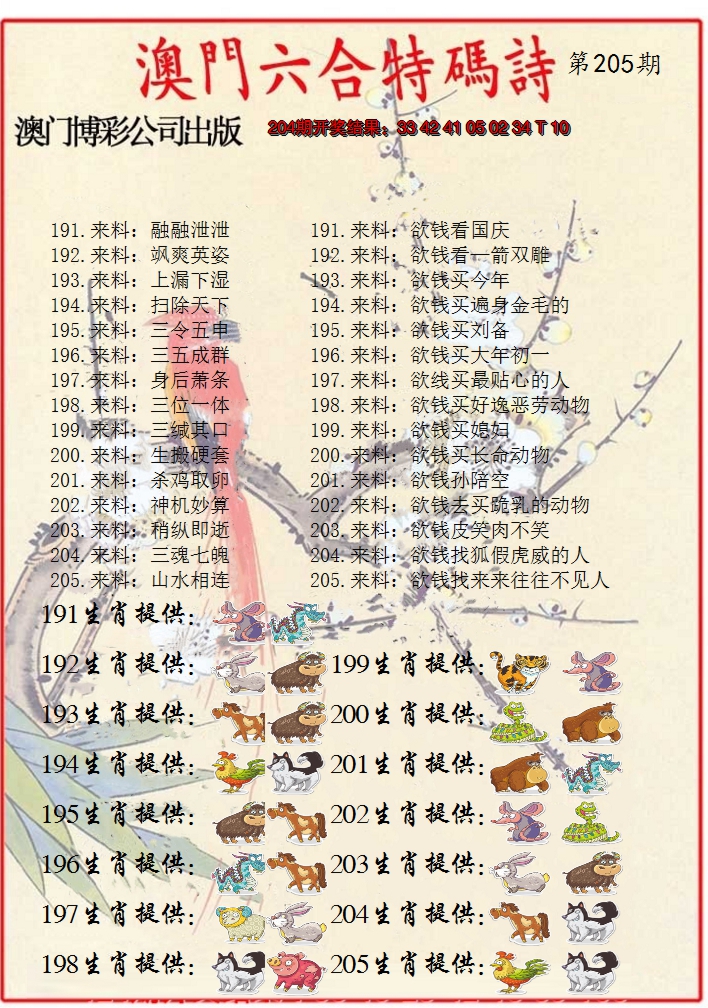 澳門六合特碼詩 第205期
澳门博彩公司出版 204期开奖结果：33 42 41 05 02 34 T 10
191.来料：融融泄泄 191.来料：欲钱看国庆
192.来料：飒爽英姿 192.来料：欲钱看一箭双雕
193.来料：上漏下湿 193.来料：欲钱买今年
194.来料：扫除天下 194.来料：欲钱买遍身金毛的
195.来料：三令五申 195.来料：欲钱买刘备
196.来料：三五成群 196.来料：欲钱买大年初一
197.来料：身后萧条 197.来料：欲线买最贴心的人
198.来料：三位一体 198.来料：欲钱买好逸恶劳动物
199.来料：三缄其口 199.来料：欲钱买媳妇
200.来料：生搬硬套 200.来料：欲钱买长命动物
201.来料：杀鸡取卵 201.来料：欲钱孙陪空
202.来料：神机妙算 202.来料：欲钱去买跪乳的动物
203.来料：稍纵即逝 203.来料：欲钱皮笑肉不笑
204.来料：三魂七魄 204.来料：欲钱找狐假虎威的人
205.来料：山水相连 205.来料：欲钱找来来往往不见人
191生肖提供：
192生肖提供： 199生肖提供：
193生肖提供： 200生肖提供：
194生肖提供： 201生肖提供：
195生肖提供： 202生肖提供：
196生肖提供： 203生肖提供：
197生肖提供： 204生肖提供：
198生肖提供： 205生肖提供：